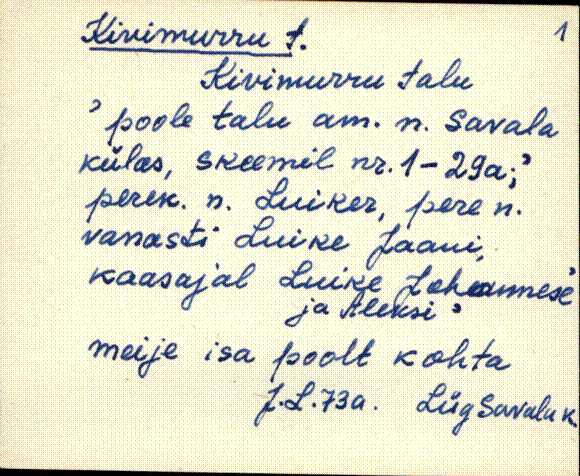 Kivimurru t. 1
Kivimurru talu
'poole talu am. n. Savala
külas, skeemil nr. 1-29a;'
perek. n. Luiker, pere n.
vanasti Luike Jaani,
kaasajal Luike Johannese'
ja Aleksi'
meije isa poolt kohta
J.L. 73a. Lüg Savala k.